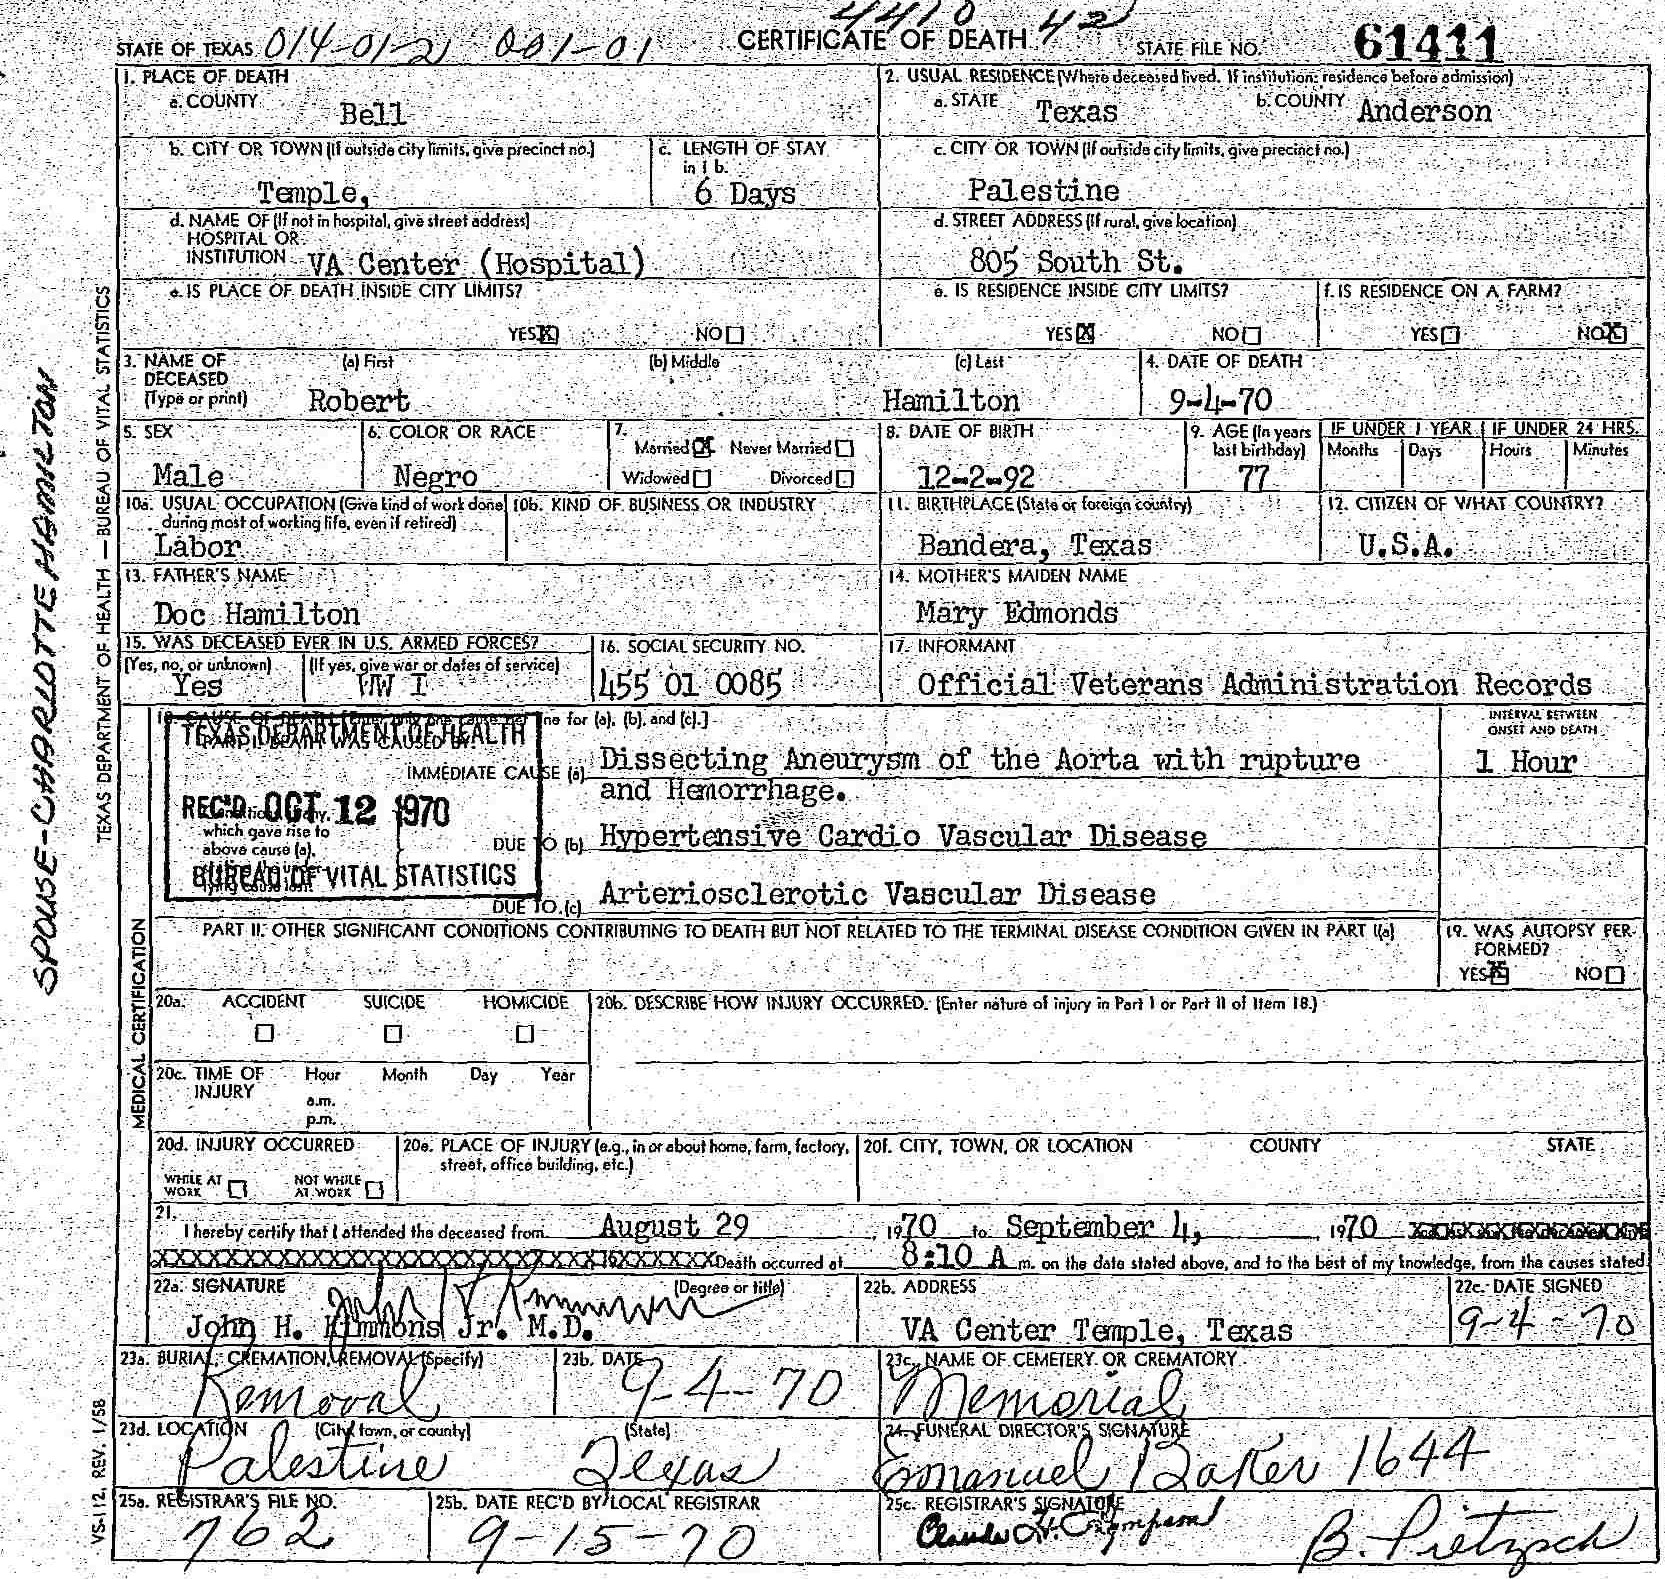 4410 42
STATE OF TEXAS 014-01-2 001-01 CERTIFICATE OF DEATH STATE FILE NO. 61411
1. PLACE OF DEATH
a. COUNTY Bell
2. USUAL RESIDENCE (Where deceased lived. If institution: residence before admission)
a. STATE Texas b. COUNTY Anderson
b. CITY OR TOWN (If outside city limits, give precinct no.) Temple,
c. LENGTH OF STAY in 1 b. 6 Days
c. CITY OR TOWN (If outside city limits, give precinct no.) Palestine
d. NAME OF (If not in hospital, give street address)
HOSPITAL OR
INSTITUTION VA Center (Hospital)
d. STREET ADDRESS (If rural, give location)
805 South St.
e. IS PLACE OF DEATH INSIDE CITY LIMITS?
YES X NO
e. IS RESIDENCE INSIDE CITY LIMITS?
YES X NO
f. IS RESIDENCE ON A FARM?
YES NO X
3. NAME OF DECEASED (Type or print)
(a) First (b) Middle (c) Last
Robert Hamilton
4. DATE OF DEATH
9-4-70
5. SEX
Male
6. COLOR OR RACE
Negro
7. Married X Never Married
Widowed Divorced
8. DATE OF BIRTH
12-2-92
9. AGE (In years last birthday)
77
IF UNDER 1 YEAR
Months Days
IF UNDER 24 HRS.
Hours Minutes
10a. USUAL OCCUPATION (Give kind of work done during most of working life, even if retired)
Labor
10b. KIND OF BUSINESS OR INDUSTRY
11. BIRTHPLACE (State or foreign country)
Bandera, Texas
12. CITIZEN OF WHAT COUNTRY?
U.S.A.
13. FATHER'S NAME
Doc Hamilton
14. MOTHER'S MAIDEN NAME
Mary Edmonds
15. WAS DECEASED EVER IN U.S. ARMED FORCES?
(Yes, no, or unknown) (If yes, give war or dates of service)
Yes WW I
16. SOCIAL SECURITY NO.
455 01 0085
17. INFORMANT
Official Veterans Administration Records
18. CAUSE OF DEATH [Enter only one cause per line for (a), (b), and (c).]
PART I. DEATH WAS CAUSED BY:
TEXAS DEPARTMENT OF HEALTH
REC'D OCT 12 1970
BUREAU OF VITAL STATISTICS
INTERVAL BETWEEN ONSET AND DEATH
IMMEDIATE CAUSE (a) Dissecting Aneurysm of the Aorta with rupture 1 Hour
and Hemorrhage.
which gave rise to
above cause (a).
DUE TO (b) Hypertensive Cardio Vascular Disease
DUE TO (c) Arteriosclerotic Vascular Disease
PART II. OTHER SIGNIFICANT CONDITIONS CONTRIBUTING TO DEATH BUT NOT RELATED TO THE TERMINAL DISEASE CONDITION GIVEN IN PART I(a)
19. WAS AUTOPSY PERFORMED?
YES X NO
20a. ACCIDENT SUICIDE HOMICIDE
20b. DESCRIBE HOW INJURY OCCURRED. (Enter nature of injury in Part I or Part II of Item 18.)
20c. TIME OF INJURY Hour Month Day Year
a.m.
p.m.
20d. INJURY OCCURRED
WHILE AT WORK NOT WHILE AT WORK
20e. PLACE OF INJURY (e.g., in or about home, farm, factory, street, office building, etc.)
20f. CITY, TOWN, OR LOCATION COUNTY STATE
21.
I hereby certify that I attended the deceased from August 29, 1970 to September 4, 1970
Death occurred at 8:10 A m. on the date stated above, and to the best of my knowledge, from the causes stated
22a. SIGNATURE (Degree or title)
John H. Kimmons Jr. M.D.
22b. ADDRESS
VA Center Temple, Texas
22c. DATE SIGNED
9-4-70
23a. BURIAL, CREMATION, REMOVAL (Specify)
Removal
23b. DATE
9-4-70
23c. NAME OF CEMETERY OR CREMATORY
Memorial
23d. LOCATION (City, town, or county) (State)
Palestine Texas
24. FUNERAL DIRECTOR'S SIGNATURE
Emanuel Baker 1644
25a. REGISTRAR'S FILE NO.
762
25b. DATE REC'D BY LOCAL REGISTRAR
9-15-70
25c. REGISTRAR'S SIGNATURE
B. Pietzsch
SPOUSE-CHARLOTTE HAMILTON
TEXAS DEPARTMENT OF HEALTH — BUREAU OF VITAL STATISTICS
MEDICAL CERTIFICATION
VS-112, REV. 1/58